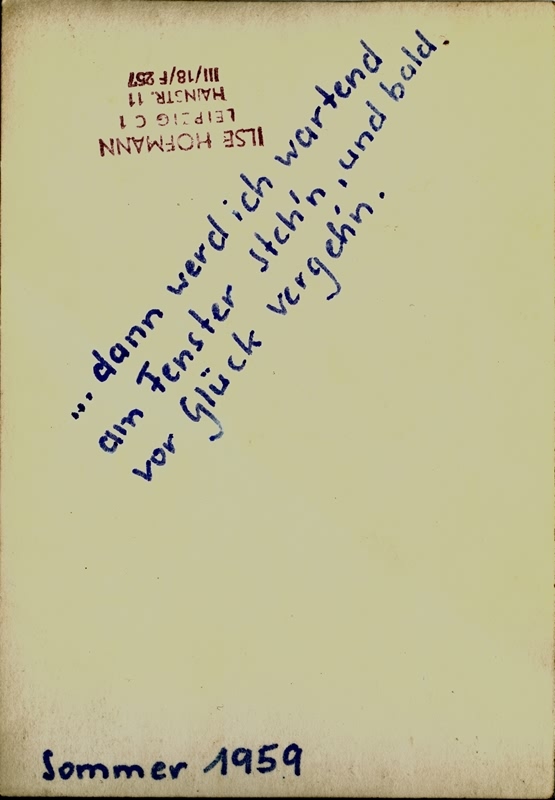 ILSE HOFMANN
LEIPZIG C 1
HAINSTR. 11
III/18/F 257
... dann werd ich wartend
am Fenster steh'n, und bald.
vor Glück vergeh'n.
Sommer 1959